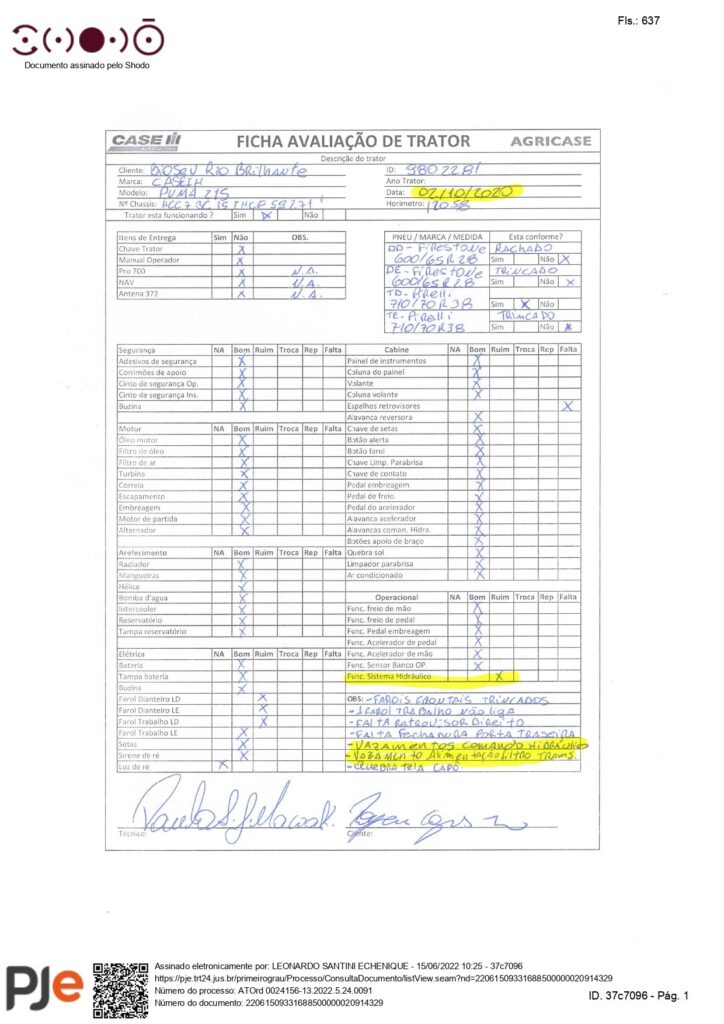 Fls.: 637
Documento assinado pelo Shodo
CASE III FICHA AVALIAÇÃO DE TRATOR AGRICASE
Descrição do trator
Cliente: Biosev Rio Brilhante ID: 9802281
Marca: CASE IH Ano Trator:
Modelo: PUMA 215 Data: 02/10/2020
Nº Chassis: Horimetro: 12058
Trator esta funcionando ? Sim X Não
Itens de Entrega Sim Não OBS.
Chave Trator X
Manual Operador X
Pro 700 X N.A.
NAV X N.A.
Antena 372 X N.A.
PNEU / MARCA / MEDIDA Esta conforme?
DD - FIRESTONE RACHADO
600/65R28 Sim Não X
DE - FIRESTONE TRINCADO
600/65R28 Sim Não X
TD - Pirelli
710/70R38 Sim X Não
TE - Pirelli TRINCADO
710/70R38 Sim Não X
Segurança NA Bom Ruim Troca Rep Falta
Adesivos de segurança X
Corrimões de apoio X
Cinto de segurança Op. X
Cinto de segurança Ins. X
Buzina X
Motor NA Bom Ruim Troca Rep Falta
Óleo motor X
Filtro de óleo X
Filtro de ar X
Turbina X
Correia X
Escapamento X
Embreagem X
Motor de partida X
Alternador X
Arefecimento NA Bom Ruim Troca Rep Falta
Radiador X
Mangueiras X
Hélice X
Bomba d'agua X
Intercooler X
Reservatório X
Tampa reservatório X
Elétrica NA Bom Ruim Troca Rep Falta
Bateria X
Tampa bateria X
Buzina X
Farol Dianteiro LD X
Farol Dianteiro LE X
Farol Trabalho LD X
Farol Trabalho LE X
Setas X
Sirene de ré X
Luz de ré X
Cabine NA Bom Ruim Troca Rep Falta
Painel de instrumentos X
Coluna do painel X
Volante X
Coluna volante X
Espelhos retrovisores X
Alavanca reversora X
Chave de setas X
Botão alerta X
Botão farol X
Chave Limp. Parabrisa X
Chave de contato X
Pedal embreagem X
Pedal de freio X
Pedal do acelerador X
Alavanca acelerador X
Alavancas coman. Hidra. X
Botões apoio de braço X
Quebra sol X
Limpador parabrisa X
Ar condicionado X
Operacional NA Bom Ruim Troca Rep Falta
Func. freio de mão X
Func. freio de pedal X
Func. Pedal embreagem X
Func. Acelerador de pedal X
Func. Acelerador de mão X
Func. Sensor Banco OP. X
Func. Sistema Hidráulico X
OBS: - FAROIS FRONTAIS TRINCADOS
- 1 FAROL TRABALHO NÃO liga
- FALTA RETROVISOR DIREITO
- FALTA FECHADURA PORTA TRASEIRA
- VAZAMENTOS COMANDO HIDRÁULICO
- VAZAMENTO AlimENTAÇÃO FILTRO TRANS.
- QUEBRA TELA CAPÔ
Técnico: Cliente:
PJe
Assinado eletronicamente por: LEONARDO SANTINI ECHENIQUE - 15/06/2022 10:25 - 37c7096
https://pje.trt24.jus.br/primeirograu/Processo/ConsultaDocumento/listView.seam?nd=22061509331688500000020914329
Número do processo: ATOrd 0024156-13.2022.5.24.0091
Número do documento: 22061509331688500000020914329
ID. 37c7096 - Pág. 1